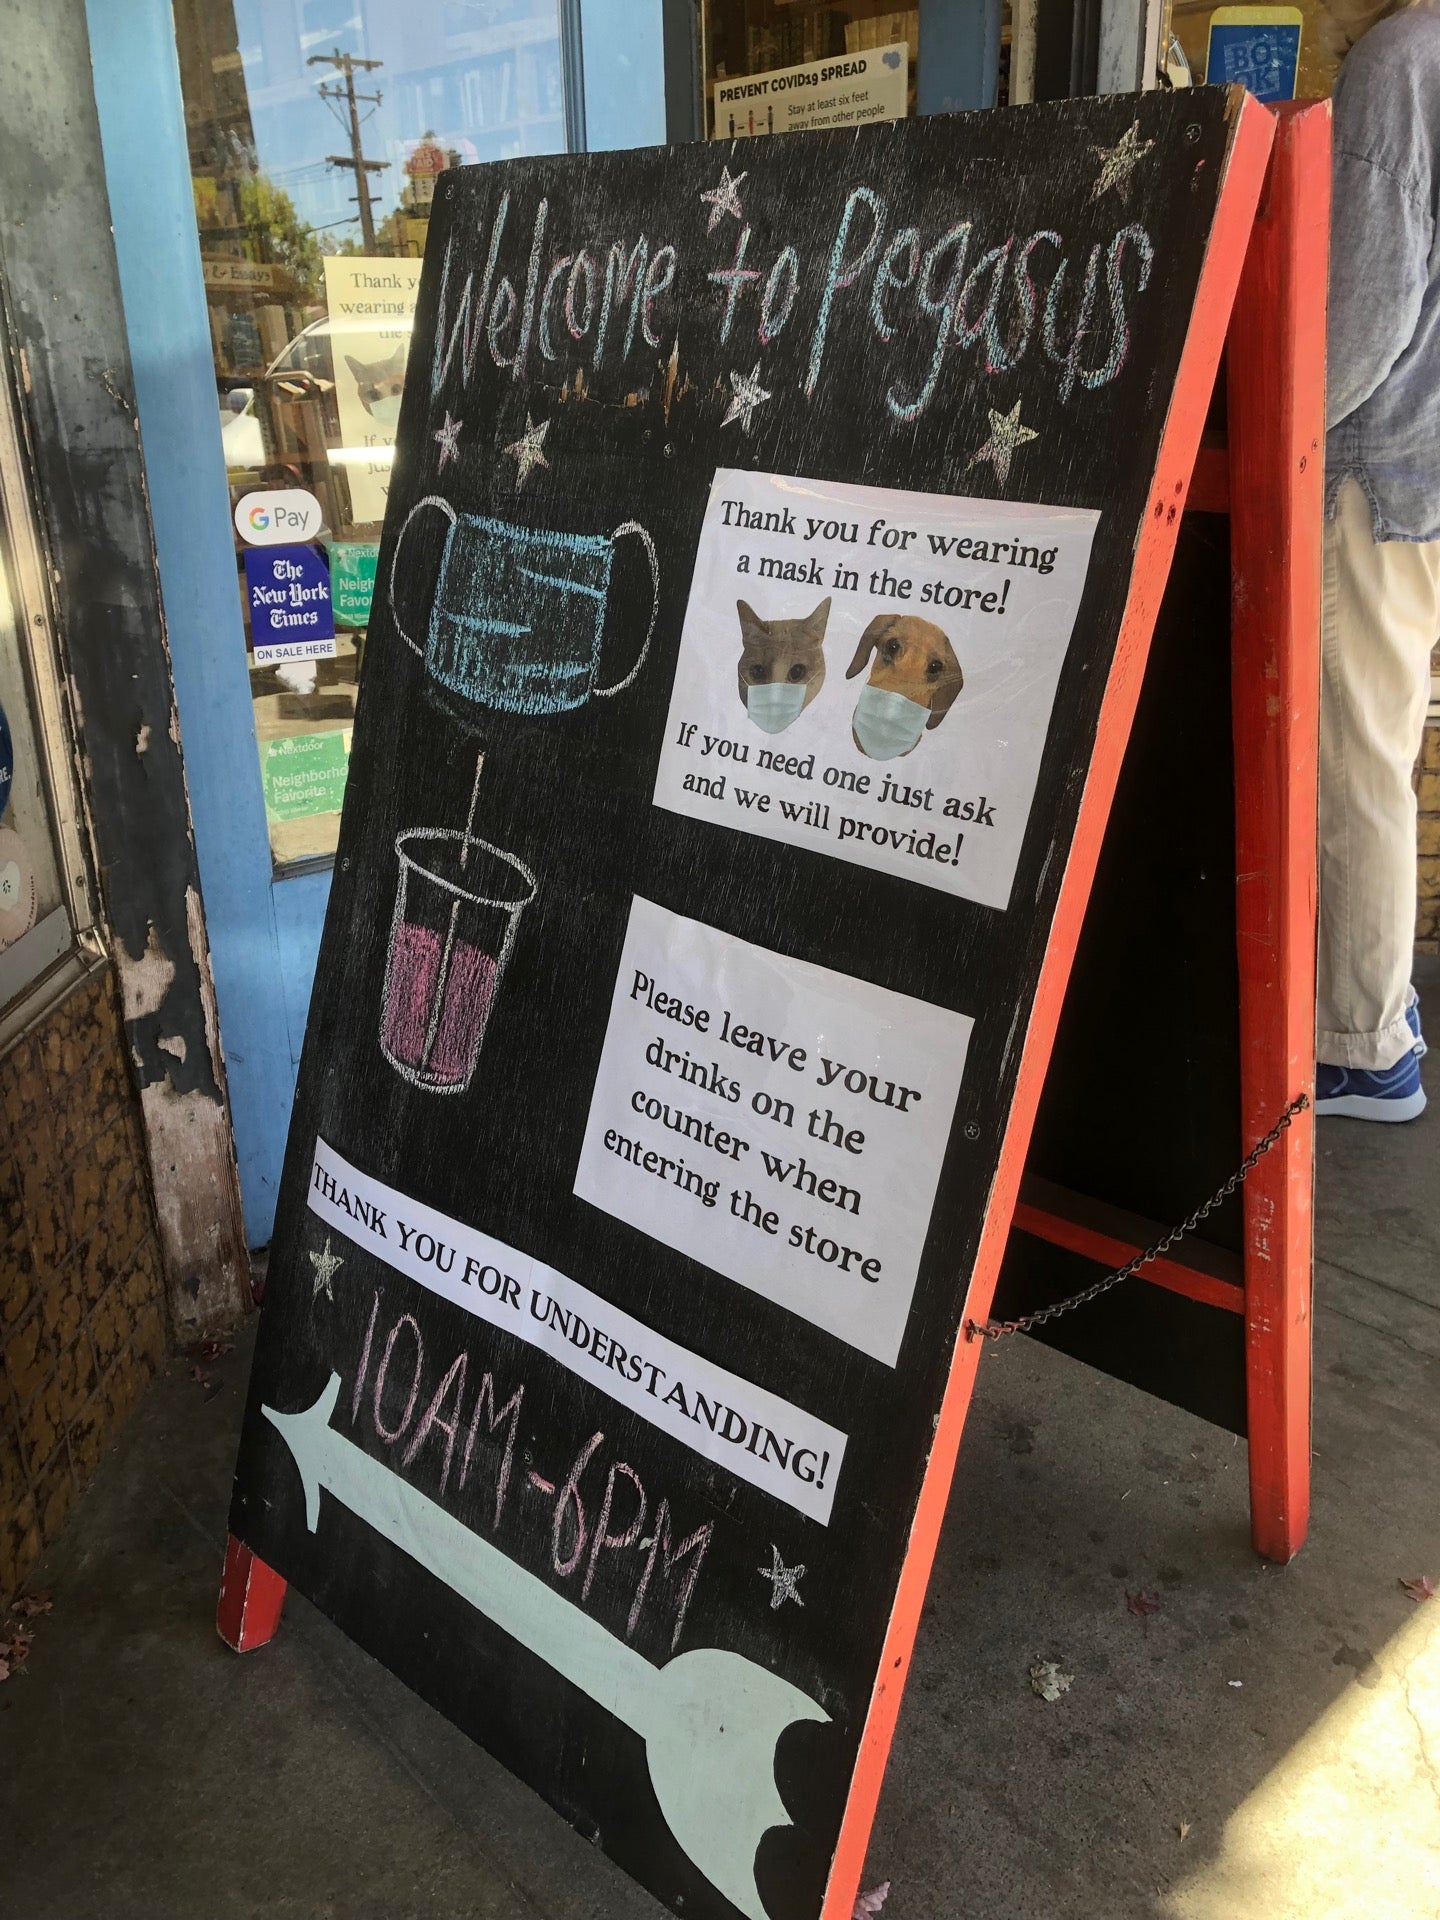 PREVENT COVID19 SPREAD
Stay at least six feet
away from other people
BO
OK
Welcome to Pegasus
Thank you for wearing
a mask in the store!
If you need one just ask
and we will provide!
Please leave your
drinks on the
counter when
entering the store
THANK YOU FOR UNDERSTANDING!
10AM-6PM
& Essays
Thank y
wearing a
the
If y
jus
G Pay
The
New York
Times
ON SALE HERE
Nextdo
Neigh
Favo
Nextdoor
Neighborho
Favorite